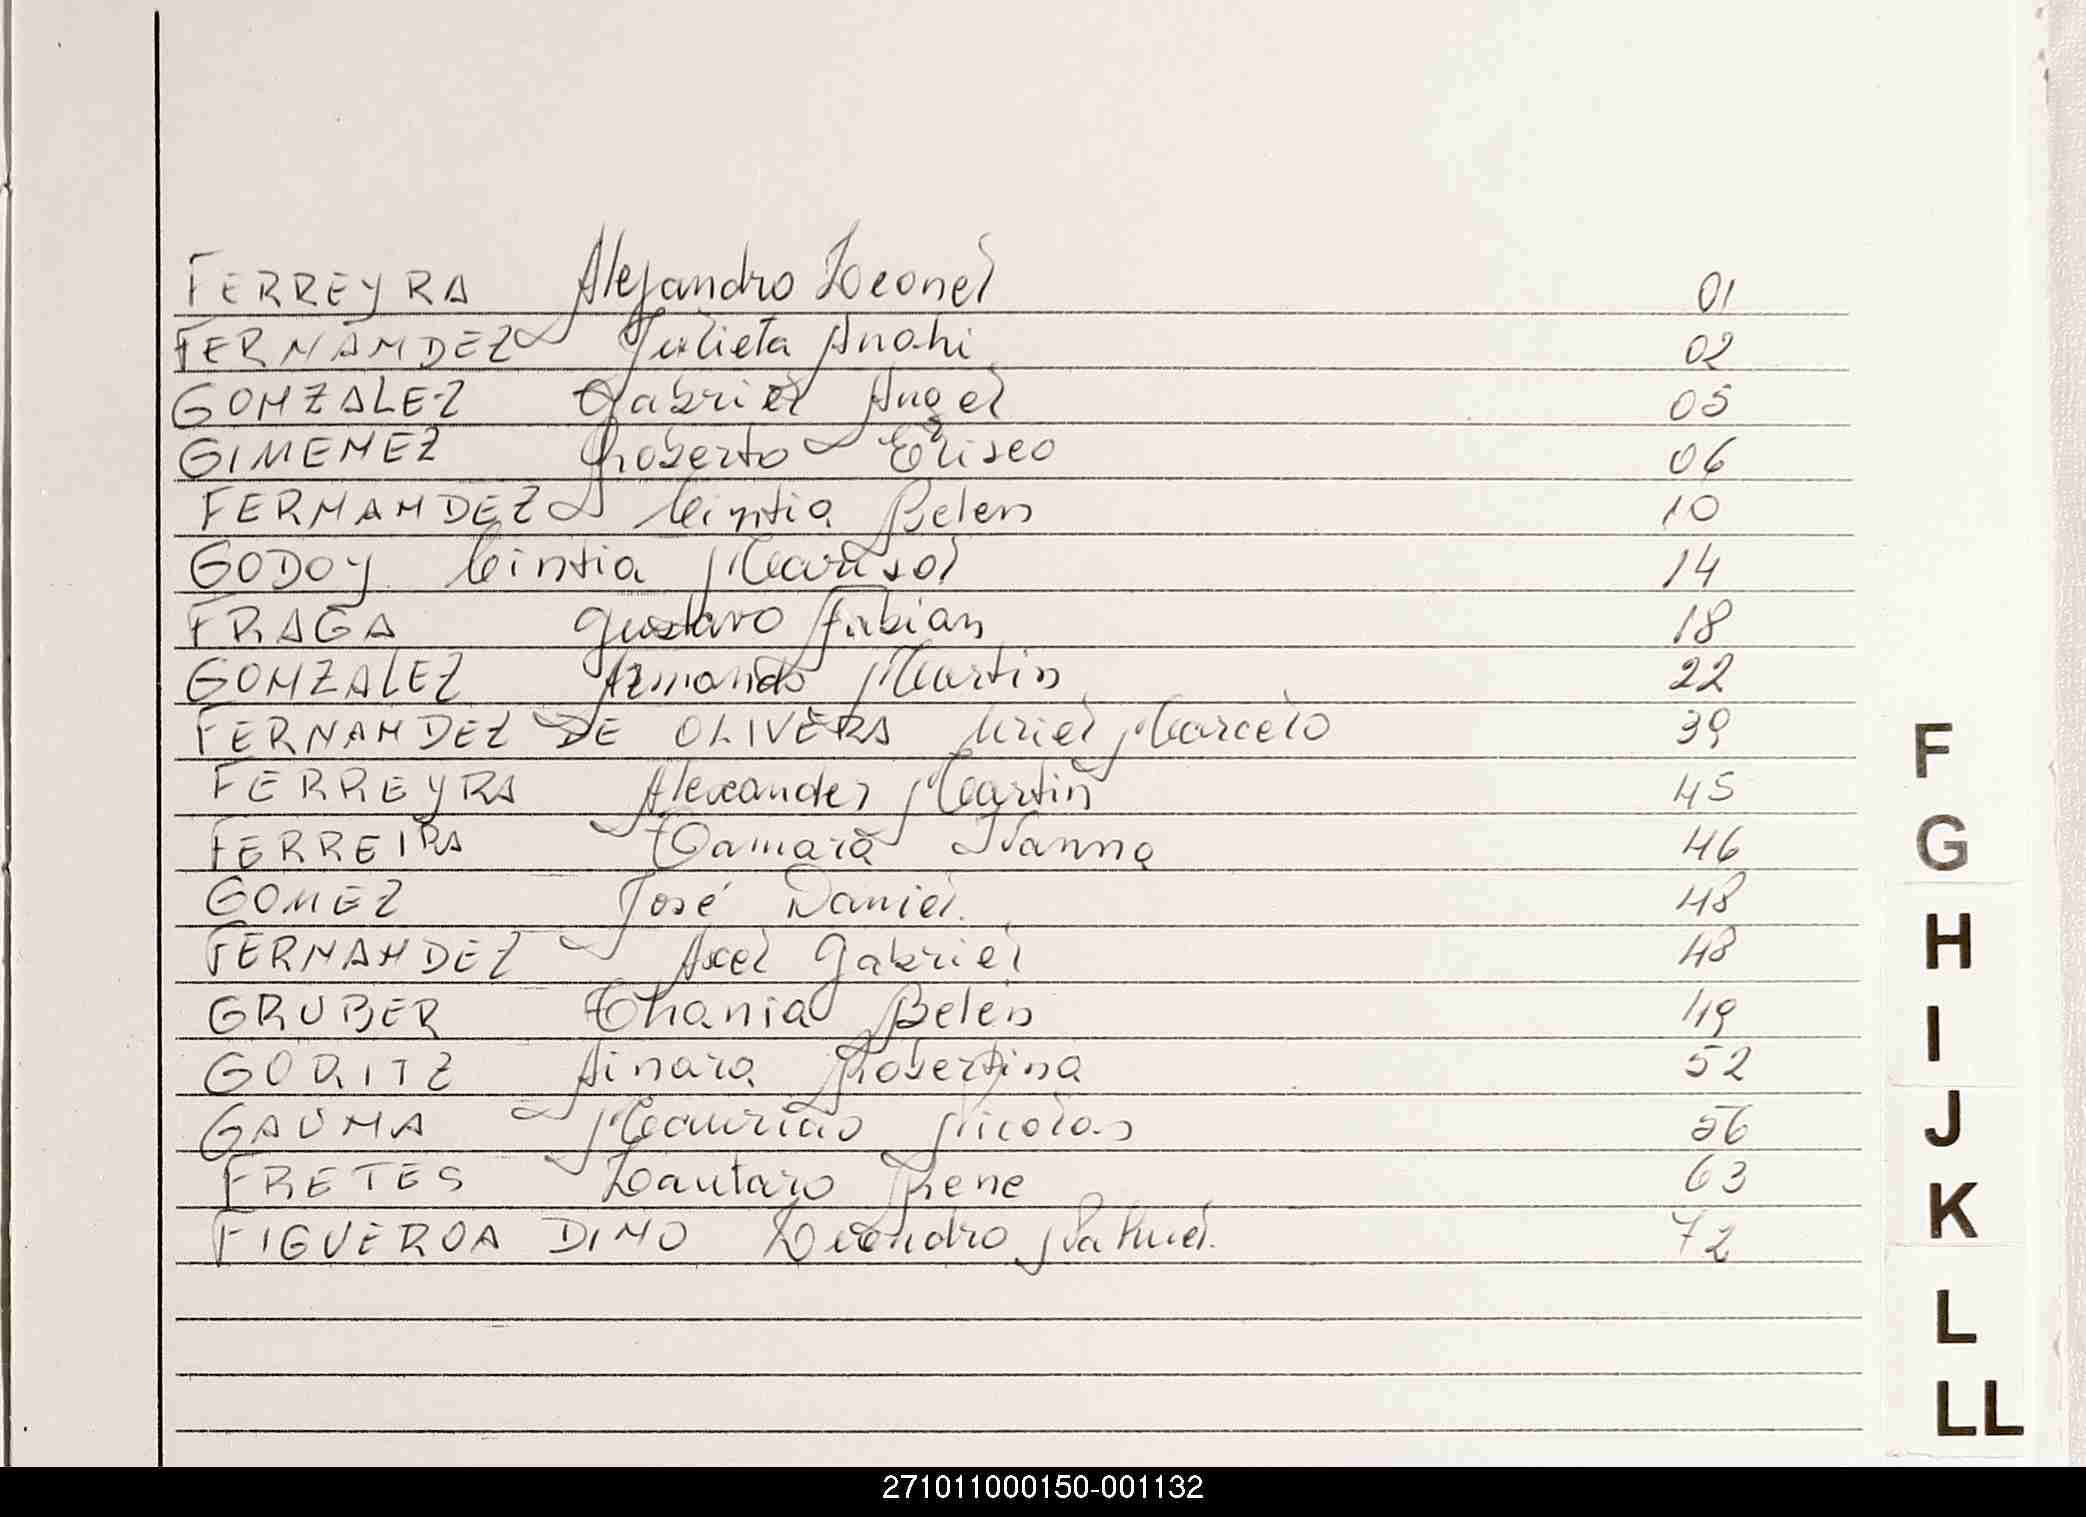 FERREYRA Alejandro Leonel 01
FERNANDEZ Julieta Anahi 02
GONZALEZ Gabriel Angel 05
GIMENEZ Roberto Eliseo 06
FERNANDEZ Cintia Belen 10
GODOY Cintia Marisol 14
FRAGA Gustavo Fabian 18
GONZALEZ Armando Martin 22
FERNANDEZ DE OLIVERA Uriel Marcelo 39
FERREYRA Alexander Martin 45
FERREIRA Tamara Ivanna 46
GOMEZ José Daniel 48
FERNANDEZ Axel Gabriel 48
GRUBER Thania Belen 49
GORITZ Ainara Robertina 52
GAUNA Mauricio Nicolas 56
FRETES Lautaro Rene 63
FIGUEROA DINO Leandro Nahuel 72
F
G
H
I
J
K
L
LL
271011000150-001132